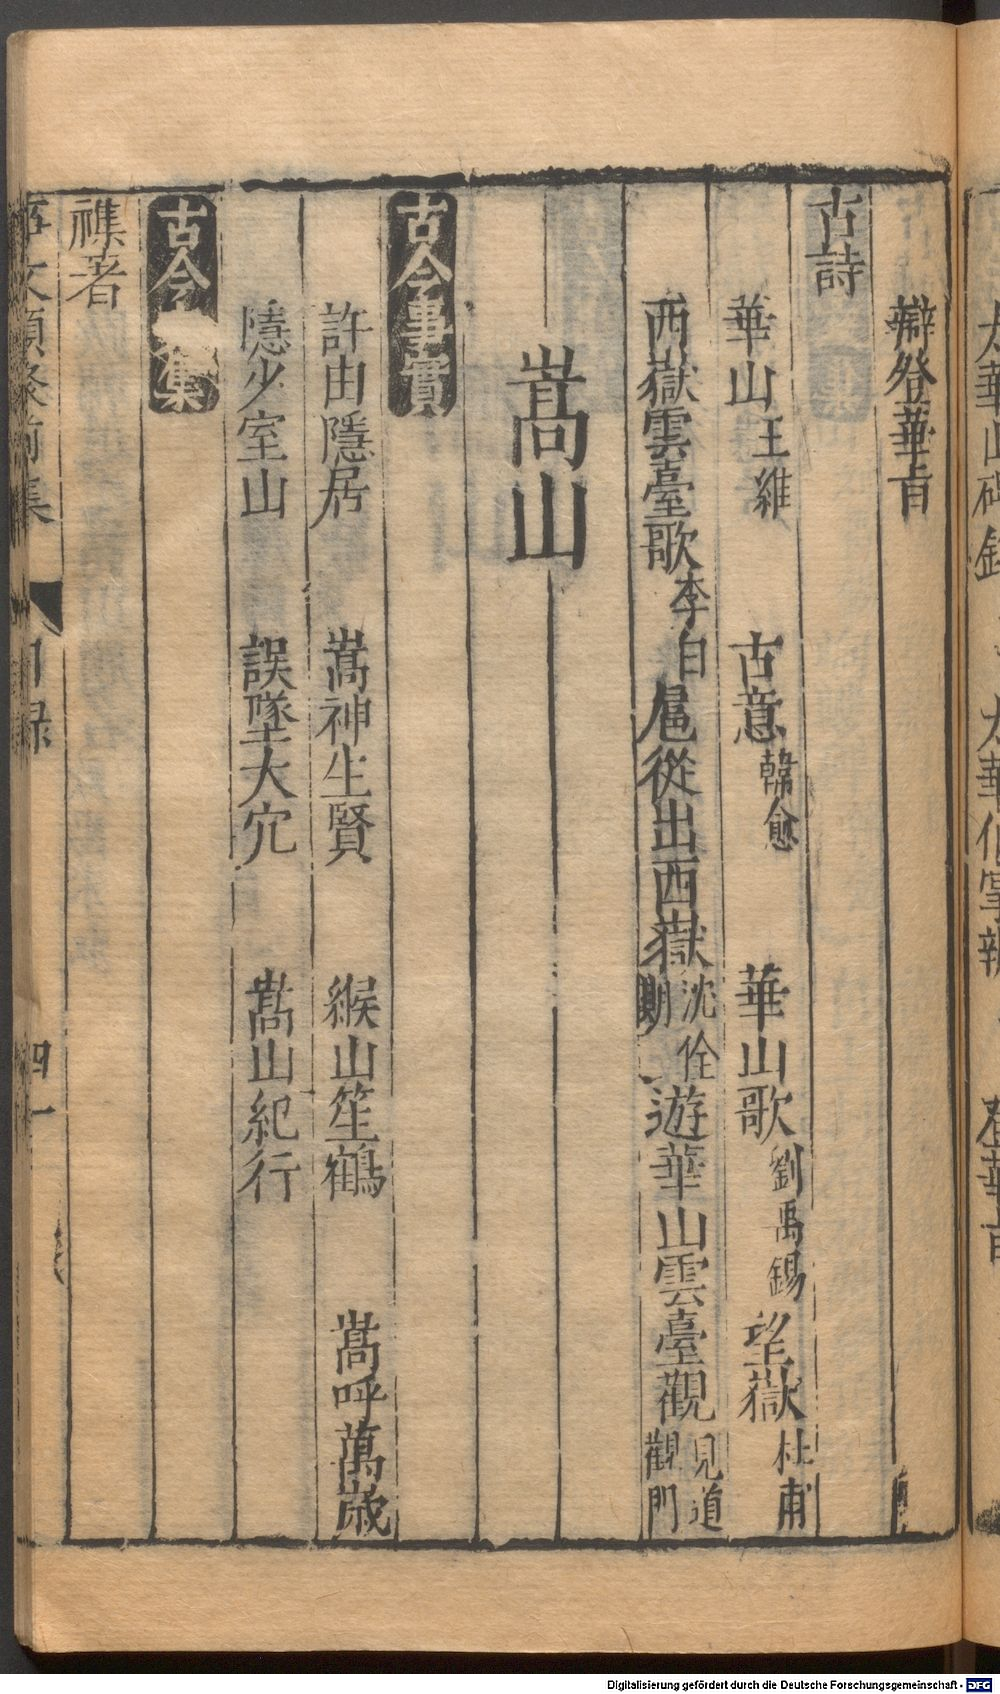 辯登華旨
古詩
華山 王維 古意 韓愈 華山歌 劉禹錫 望嶽 杜甫
西嶽雲臺歌 李白 扈從出西嶽 沈佺期 遊華山雲臺觀 見道觀門
嵩山
古今事實
許由隱居 嵩神生賢 緱山笙鶴 嵩呼萬歲
隱少室山 誤墜大穴 嵩山紀行
古今文集
襍著
事文類聚前集 目錄 四十一
Digitalisierung gefördert durch die Deutsche Forschungsgemeinschaft - DFG